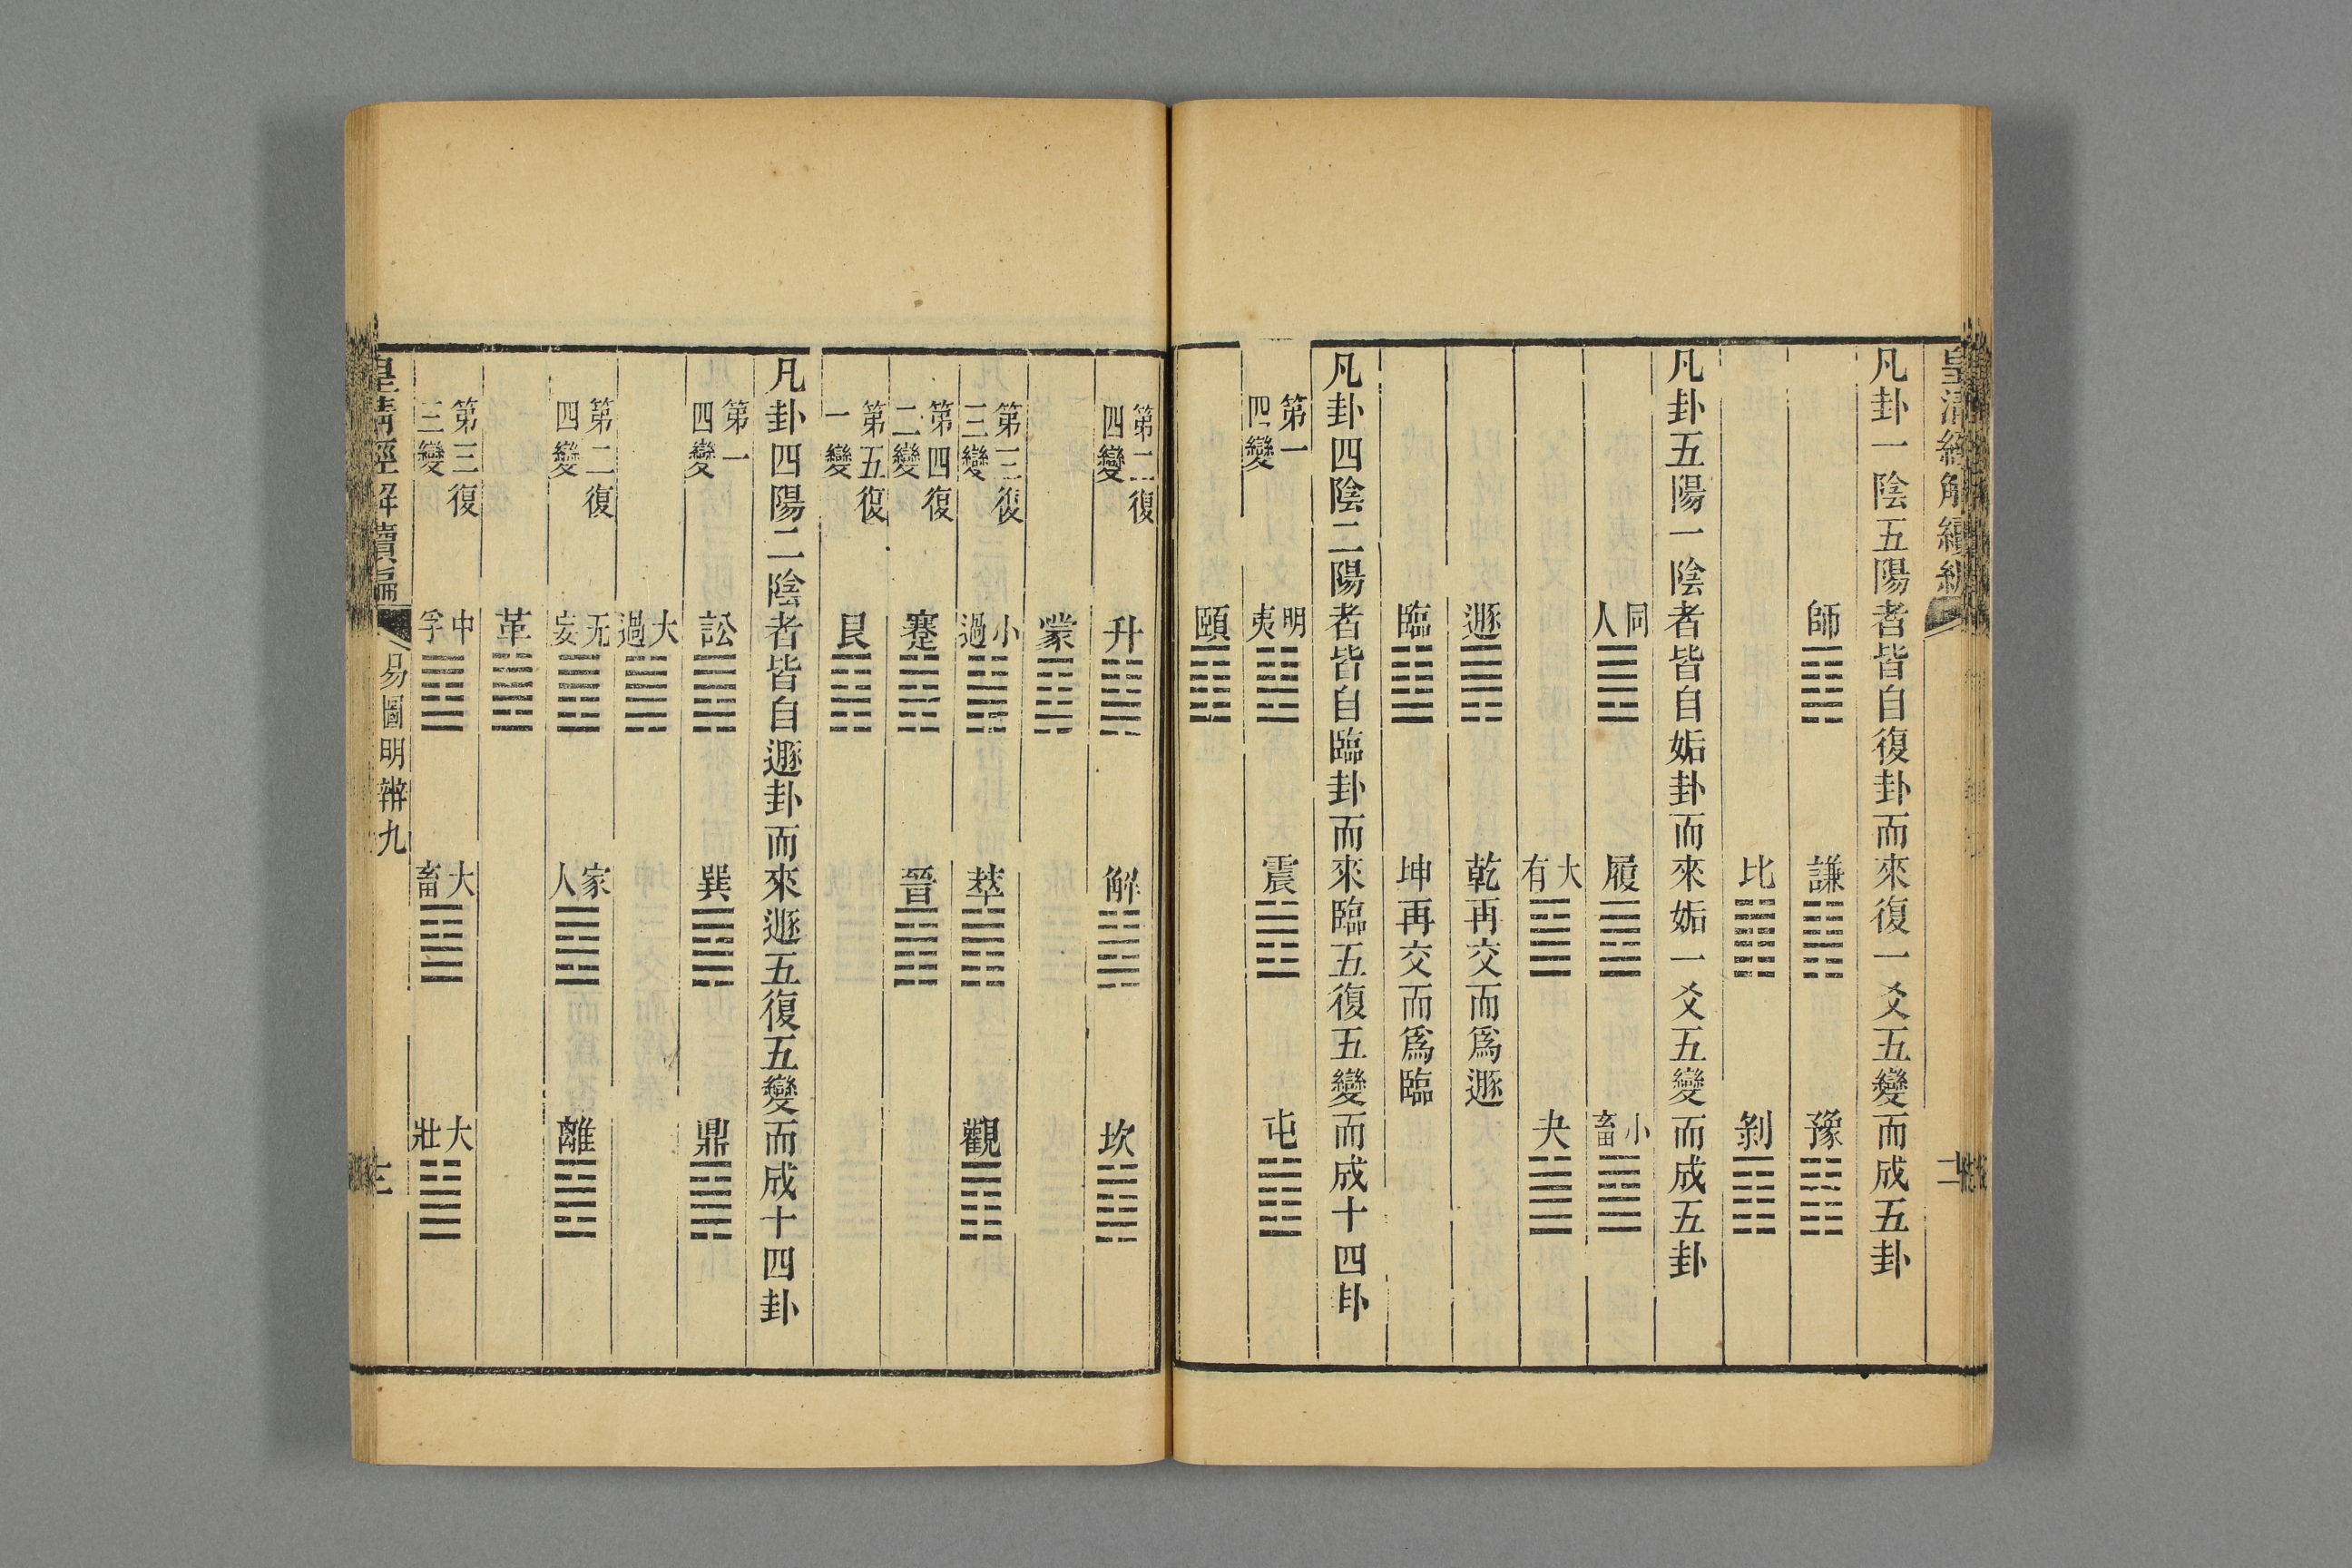 皇清經解續編
二
凡卦一陰五陽者皆自復卦而來復一爻五變而成五卦
師 謙 豫
比 剝
凡卦五陽一陰者皆自姤卦而來姤一爻五變而成五卦
同人 履 小畜
大有 夬
遯 乾再交而爲遯
臨 坤再交而爲臨
凡卦四陰二陽者皆自臨卦而來臨五復五變而成十四卦
第一四變 明夷 震 屯
頤
第二復四變 升 解 坎
蒙
第三復三變 小過 萃 觀
第四復二變 蹇 晉
第五復一變 艮
凡卦四陽二陰者皆自遯卦而來遯五復五變而成十四卦
第一四變 訟 巽 鼎
大過
第二復四變 无妄 家人 離
革
第三復三變 中孚 大畜 大壯
皇清經解續編 易圖明辨九 三